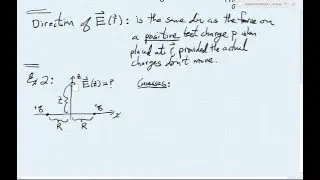 Direction of E⃗(r⃗): is the same dir as the force on
a positive test charge, p when
placed at r⃗, provided the actual
charges don't move.
Ex 2: z E⃗(z) = ? Guesses:
z
+q -q x
R R